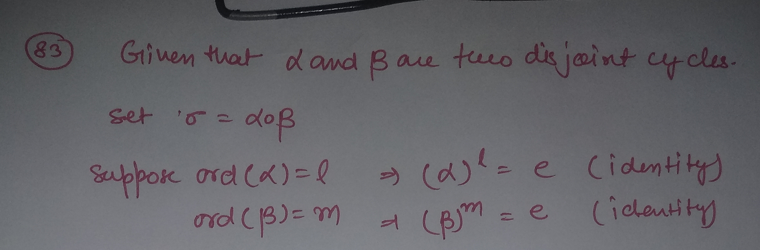 83 Given that α and β are two disjoint cycles.
set σ = α∘β
suppose ord(α)=l ⇒ (α)^l = e (identity)
ord(β)=m ⇒ (β)^m = e (identity)